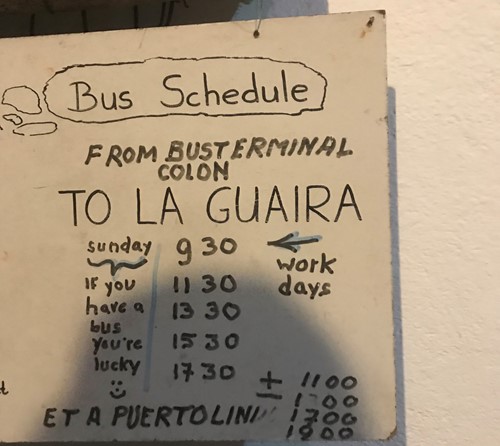 Bus Schedule
FROM BUSTERMINAL
COLON
TO LA GUAIRA
sunday 9 30 ←
work
IF you 11 30 days
have a 13 30
bus
you're 15 30
lucky 17 30
± 1100
ET A PUERTOLIN 1700
1900